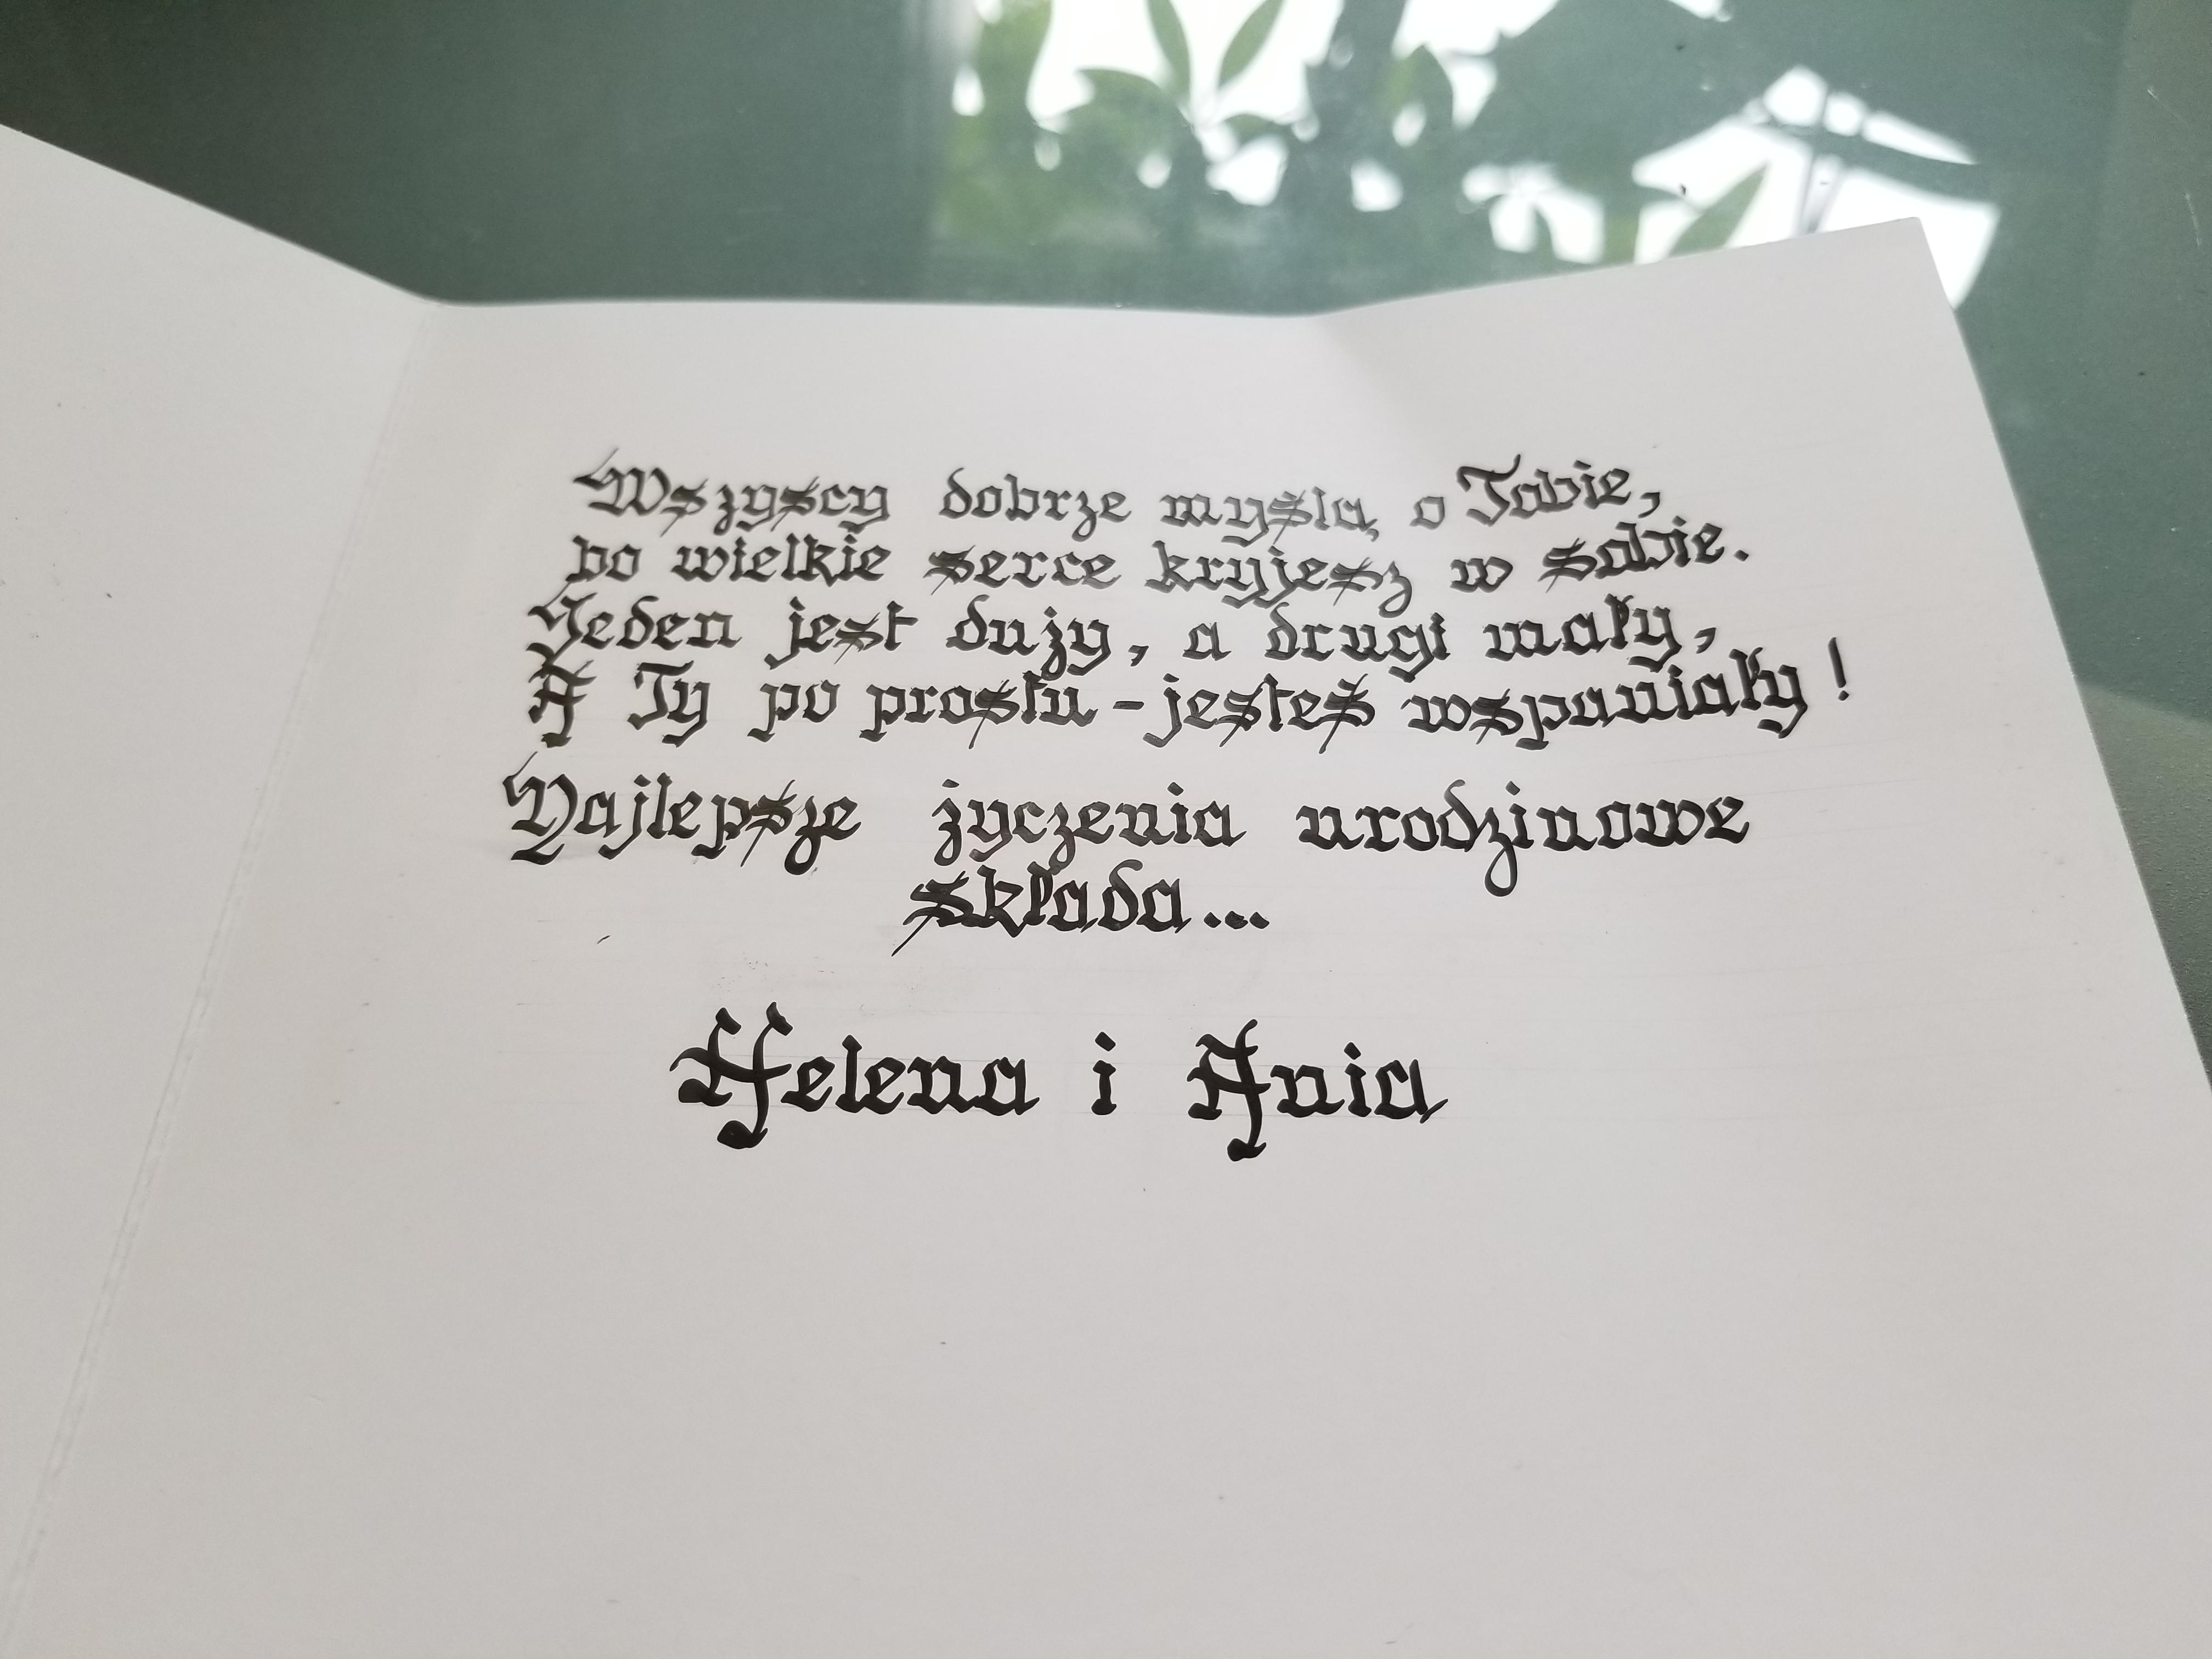 Wszyscy dobrze myślą o Tobie,
bo wielkie serce kryjesz w sobie.
Jeden jest duży, a drugi mały,
A Ty po prostu - jesteś wspaniały!
Najlepsze życzenia urodzinowe
składa...
Helena i Ania